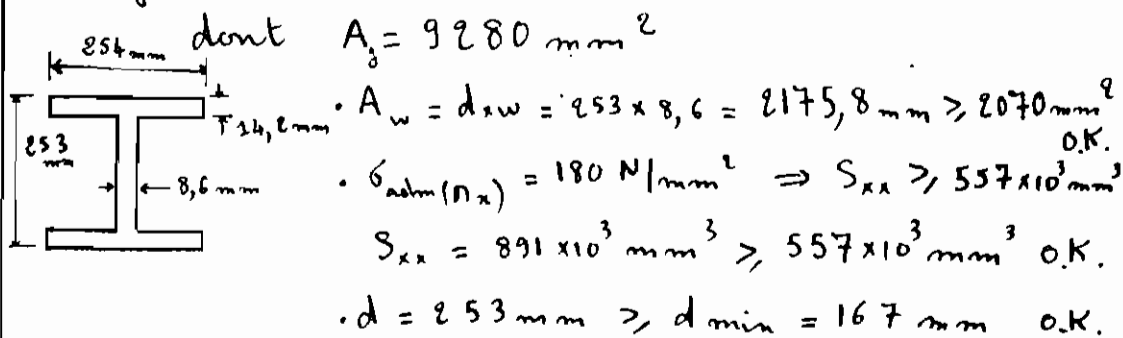 dont A_g = 9280 mm²
254 mm
253 mm
14,2 mm
8,6 mm
. A_w = d×w = 253 × 8,6 = 2175,8 mm ⩾ 2070 mm² O.K.
. σ_adm(Mx) = 180 N/mm² ⇒ S_xx ⩾ 557×10³ mm³
S_xx = 891 ×10³ mm³ ⩾ 557×10³ mm³ O.K.
. d = 253 mm ⩾ d min = 167 mm O.K.